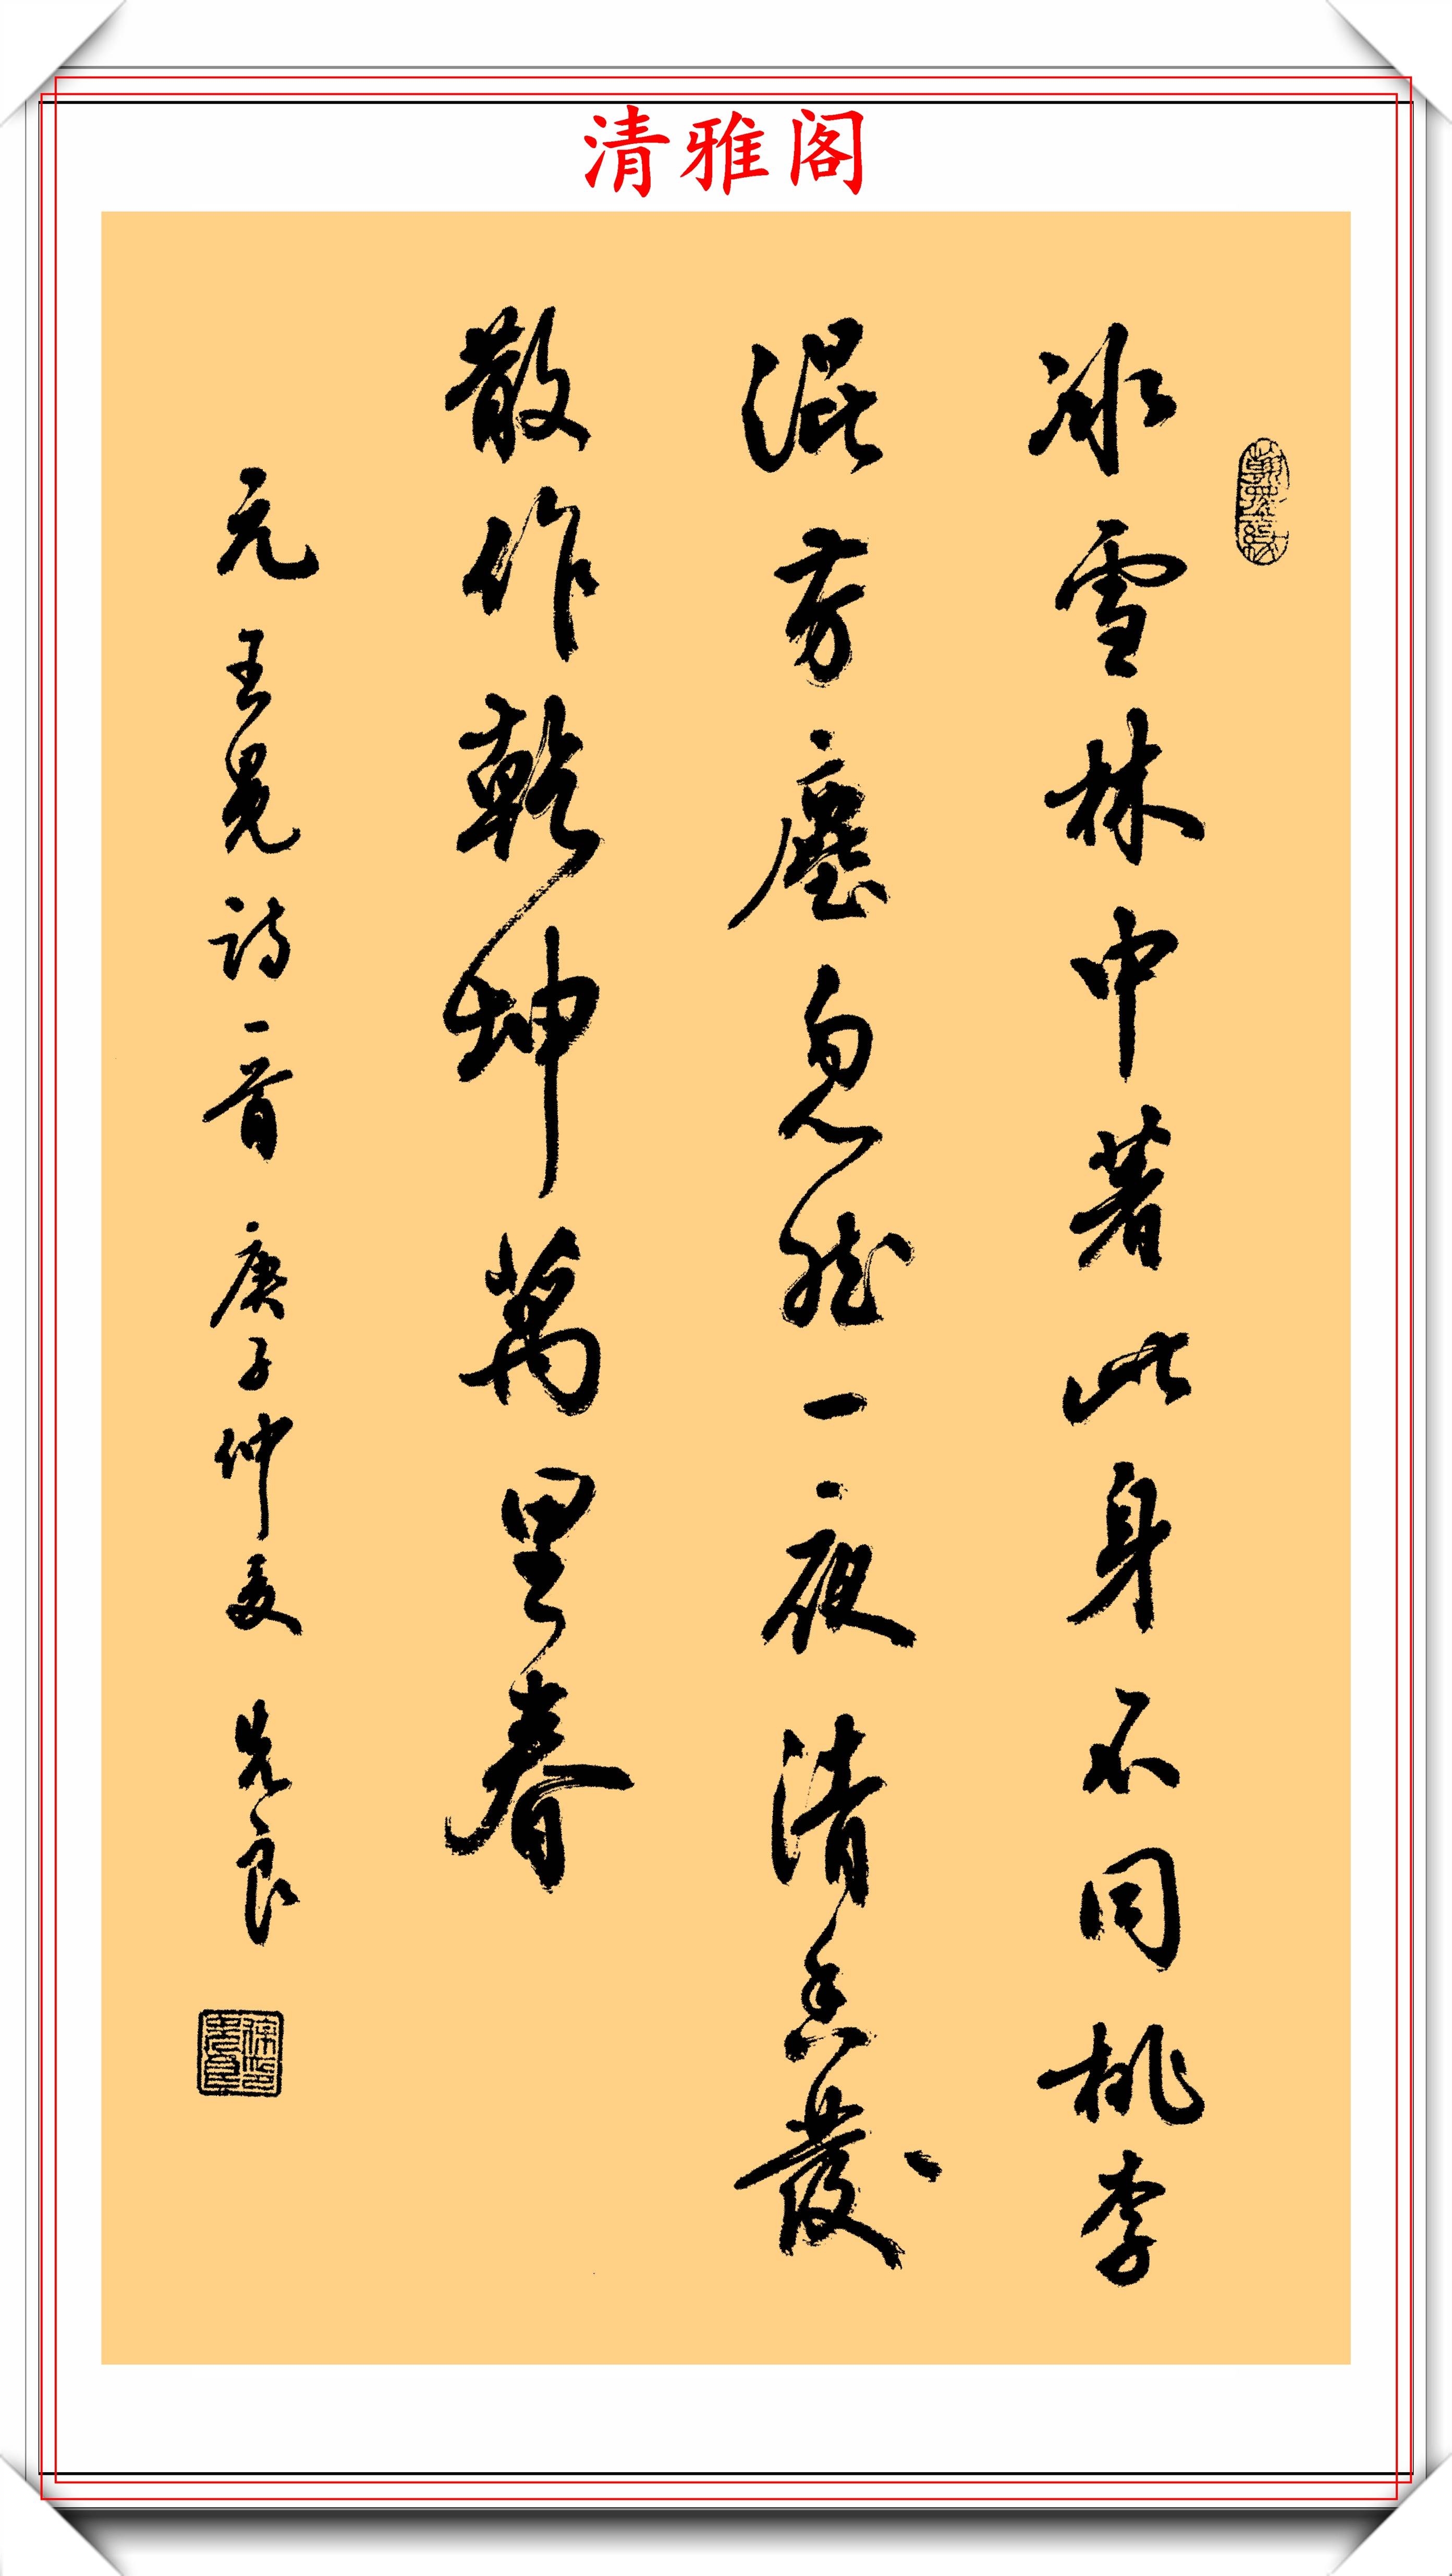 清雅阁
冰雪林中著此身不同桃李
混芳塵忽然一夜清香發
散作乾坤萬里春
元王冕詩一首庚子仲夏先良